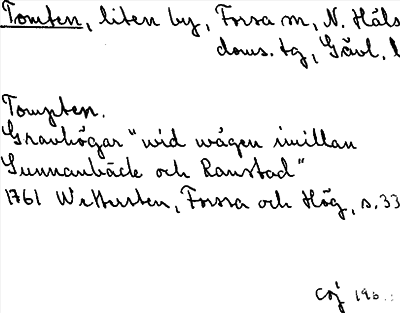 Tomten, liten by, Forsa sn, N. Häls
doms. tg, Gävl. l
Tompten.
Gravhögar "wid wägen imillan
Sunnanbäck och Ranstad"
1761 Wettersten, Forssa och Hög, s. 33
196